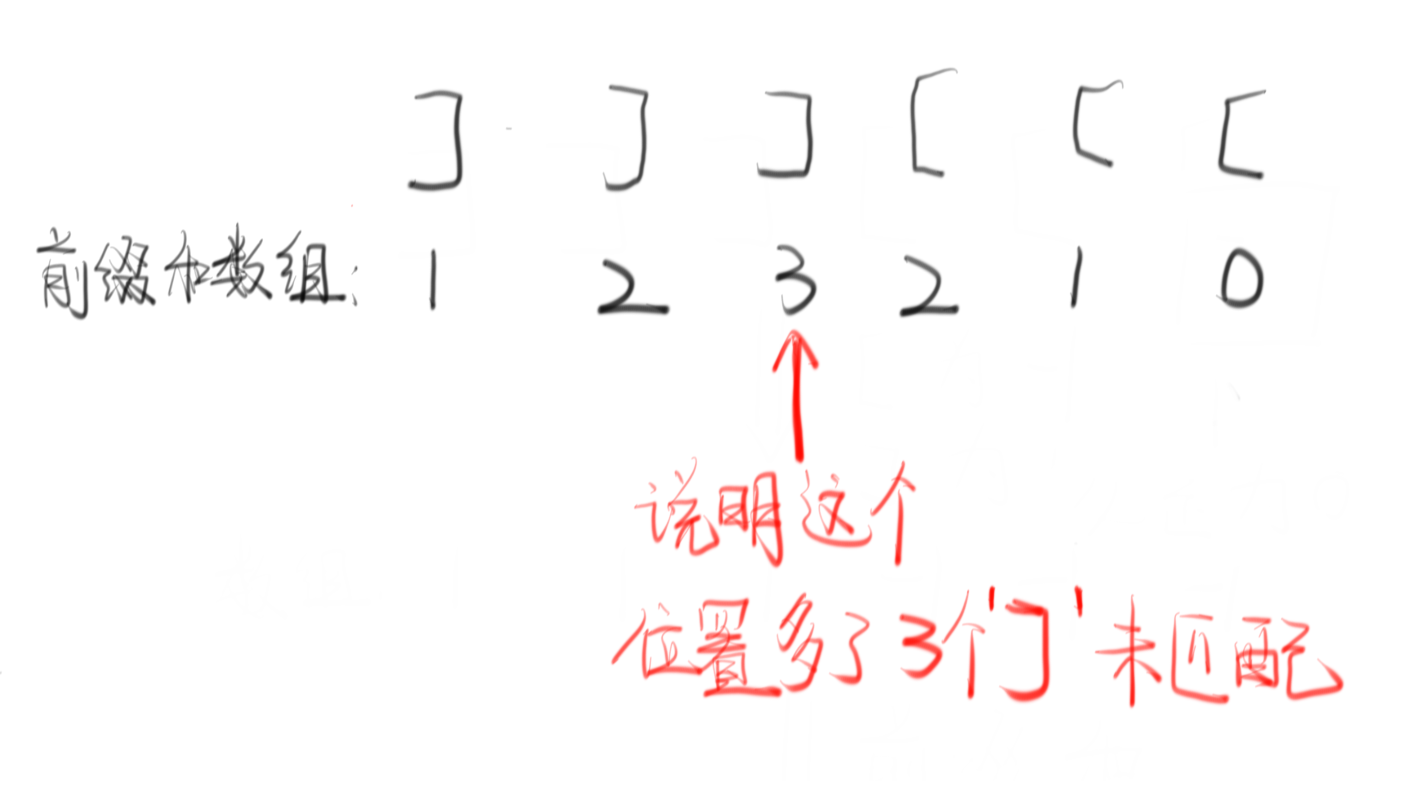 ] ] ] [ [ [
前缀和数组: 1 2 3 2 1 0
说明这个
位置多了3个']'未匹配